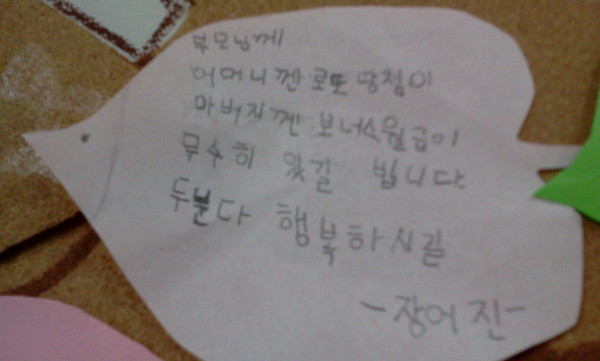 부모님께
어머니껜 로또 당첨이
아버지껜 보너스월급이
무수히 있길 빕니다
두분다 행복하시길
-장어진-